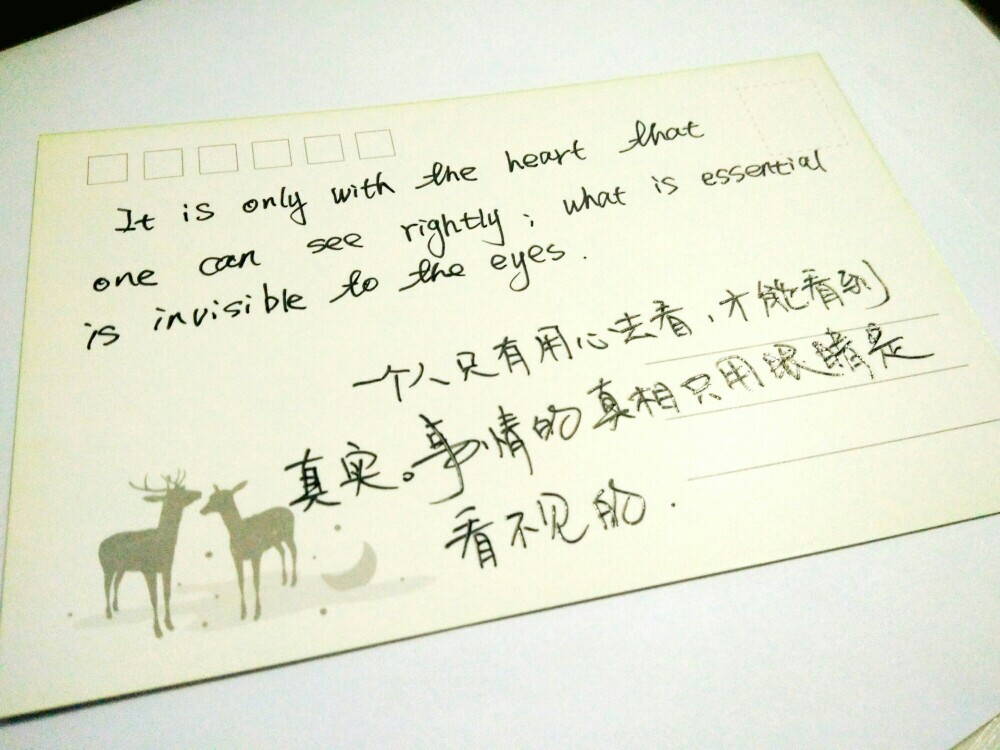 It is only with the heart that
one can see rightly; what is essential
is invisible to the eyes.
一个人只有用心去看,才能看到
真实。事情的真相只用眼睛是
看不见的.